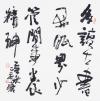 多讀古書
開眼界少
管閒事養
精神